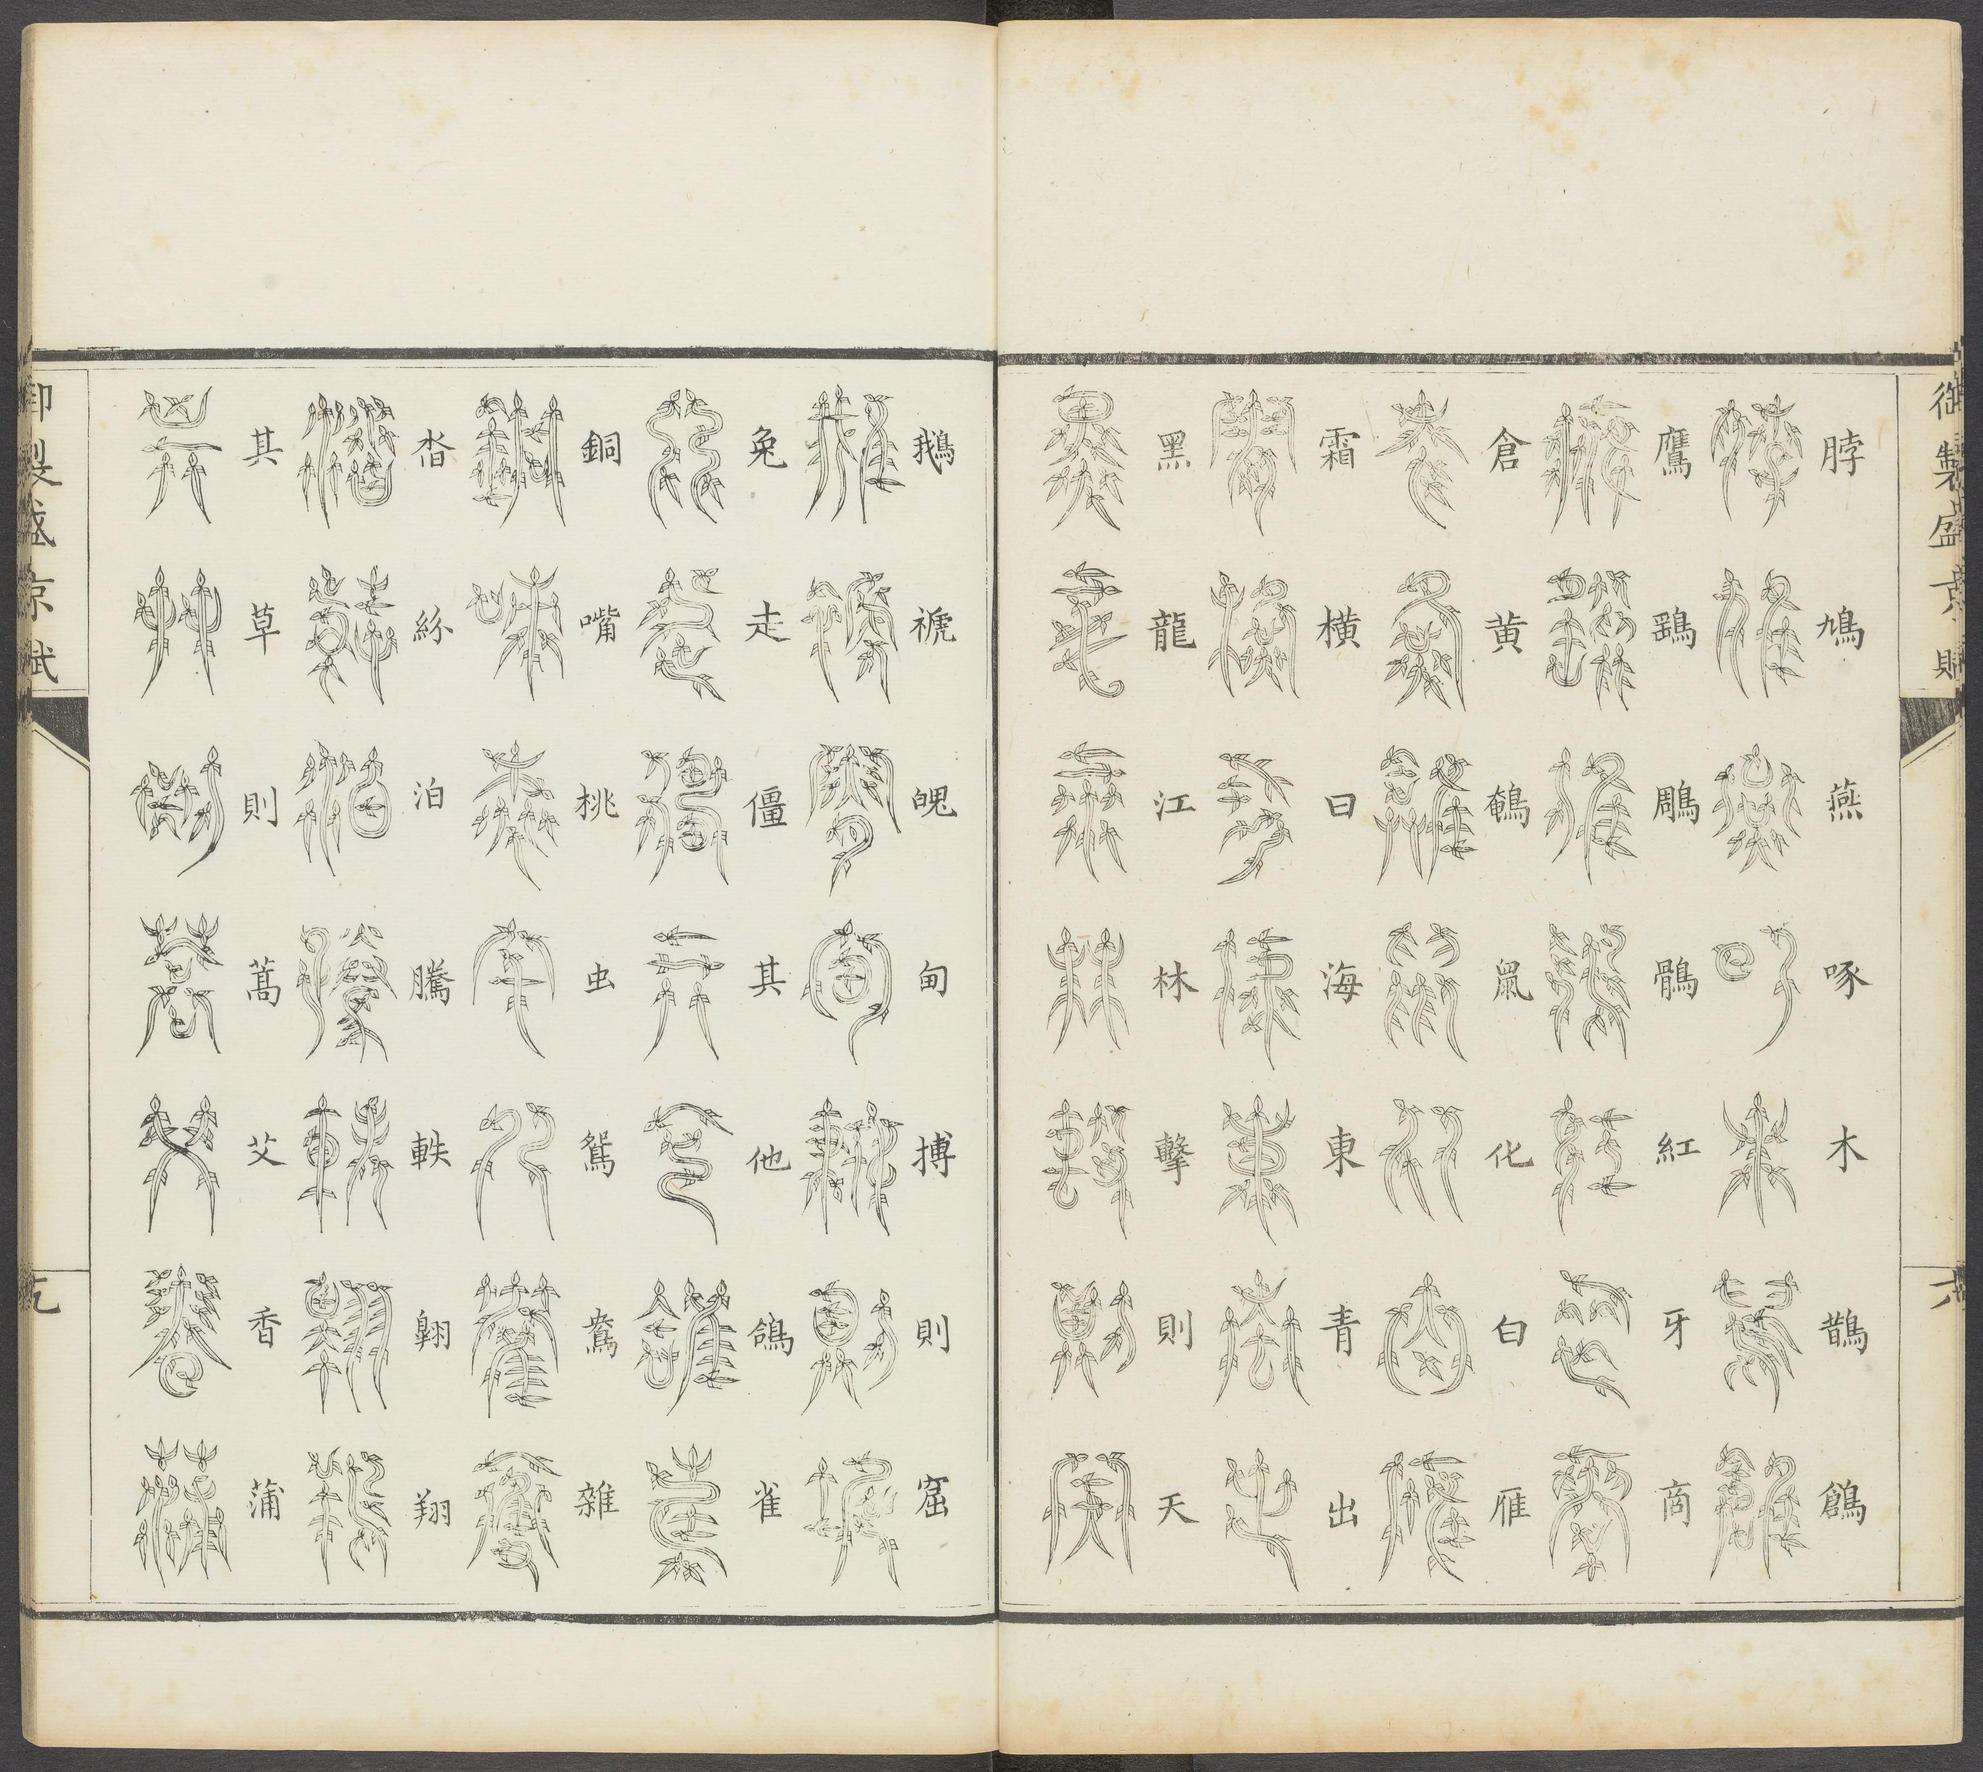 御製盛京賦
脖鳩燕啄木鵲鶬
鷹鷂鵰鶻紅牙商
倉黄鵪鼠化白雁
霜橫曰海東青出
黑龍江林擊則天
鵝褫魄甸搏則窟
兔走僵其他鴿雀
銅嘴桃虫鴛鴦雜
沓紛泊騰軼翱翔
其草則蒿艾香蒲